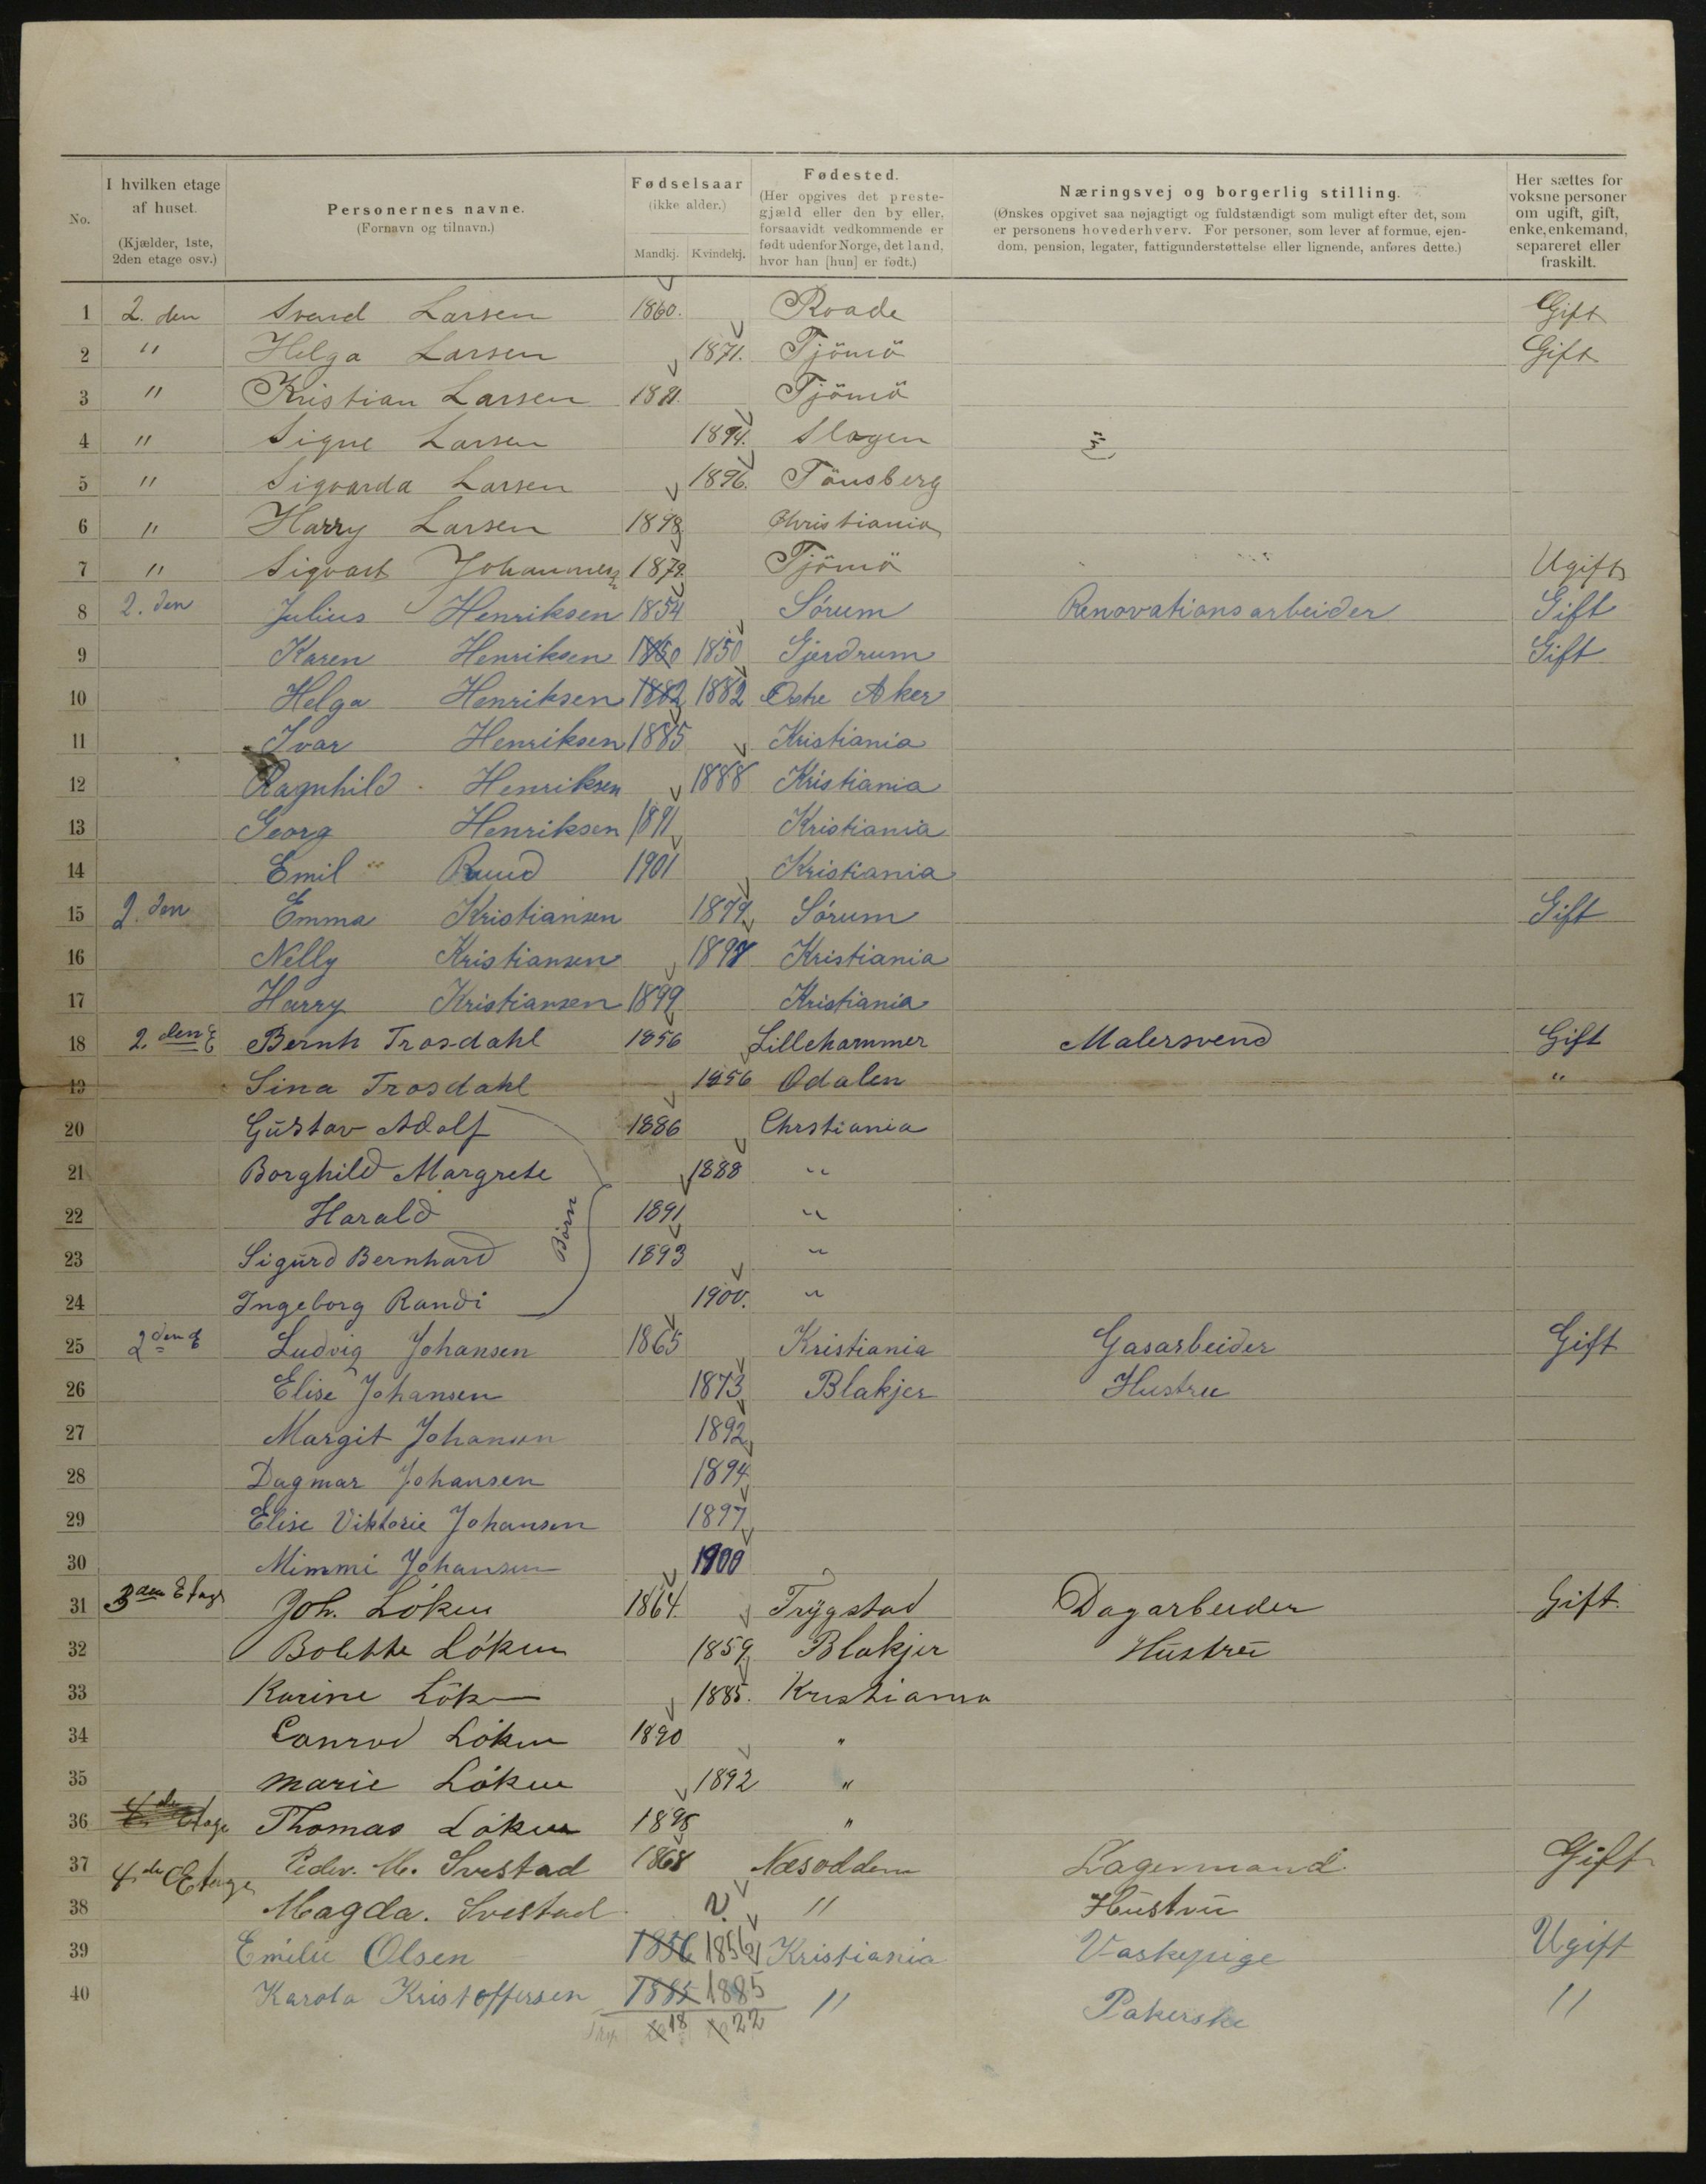 No. | I hvilken etage af huset. (Kjælder, 1ste, 2den etage osv.) | Personernes navne. (Fornavn og tilnavn.) | Fødselsaar (ikke alder.) Mandkj. Kvindekj. | Fødested. (Her opgives det prestegjæld eller den by eller, forsaavidt vedkommende er født udenfor Norge, det land, hvor han [hun] er født.) | Næringsvej og borgerlig stilling. (Ønskes opgivet saa nøjagtigt og fuldstændigt som muligt efter det, som er personens hovederhverv. For personer, som lever af formue, ejendom, pension, legater, fattigunderstøttelse eller lignende, anføres dette.) | Her sættes for voksne personer om ugift, gift, enke, enkemand, separeret eller fraskilt.
1 2. den Svend Larsen 1860. Roade Gift
2 " Helga Larsen 1871. Tjömö Gift
3 " Kristian Larsen 1891. Tjömö
4 " Signe Larsen 1894. Slagen
5 " Sigvarda Larsen 1896. Tönsberg
6 " Harry Larsen 1898 Christiania
7 " Sigvart Johannes 1879. Tjömö Ugift
8 2. den Julius Henriksen 1854 Sórum Renovationsarbeider Gift
9 Karen Henriksen 1850 1850 Gjerdrum Gift
10 Helga Henriksen 1882 1882 Østre Aker
11 Ivar Henriksen 1885 Kristiania
12 Ragnhild Henriksen 1888 Kristiania
13 Georg Henriksen 1891 Kristiania
14 Emil Ruud 1901 Kristiania
15 2. den Emma Kristiansen 1879 Sórum Gift
16 Nelly Kristiansen 1898 Kristiania
17 Harry Kristiansen 1899 Kristiania
18 2. den E Bernh Trosdahl 1856 Lillehammer Malersvend Gift
19 Lina Trosdahl 1856 Odalen "
20 Gustav Adolf 1886 Chrstiania
21 Borghild Margrete 1888 "
22 Harald Börn 1891 "
23 Sigurd Bernhard 1893 "
24 Ingeborg Randi 1900. "
25 2den E Ludvig Johansen 1865 Kristiania Gasarbeider Gift
26 Elise Johansen 1873 Blakjer Hustru
27 Margit Johansen 1892
28 Dagmar Johansen 1894
29 Elise Viktorie Johansen 1897
30 Mimmi Johansen 1900
31 3den Etage Joh. Lóken 1864. Trygstad Dagarbeider Gift.
32 Bolette Lóken 1859. Blakjer Hustru
33 Karine Löken 1885. Kristiania
34 Conrad Lóken 1890 "
35 Marie Lóken 1892 "
36 Etage Thomas Lóken 1898 "
37 4de Etage Peder. M. Svestad 1868 Næsodden Lagermand Gift
38 Magda. Svestad ? " Hustru
39 Emilie Olsen 1856 1856 Kristiania Vaskepige Ugift
40 Karola Kristoffersen 1885 1885 " Pakerske "
18 22